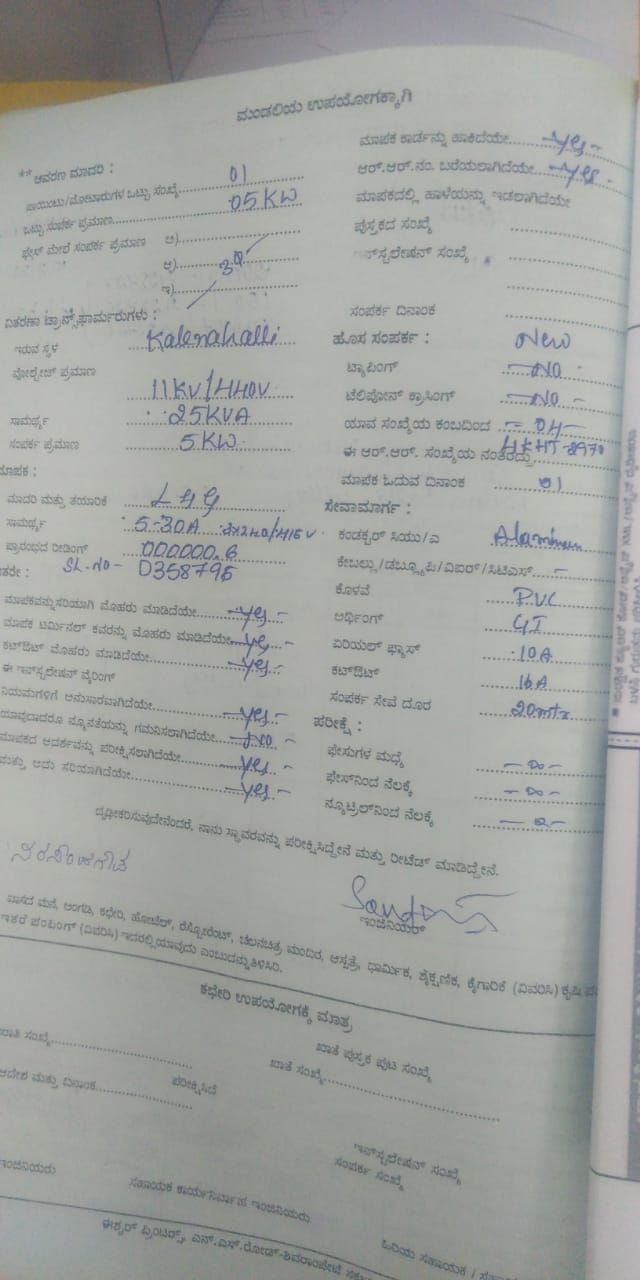 ಮಂಡಲಿಯ ಉಪಯೋಗಕ್ಕಾಗಿ
** ಆವರಣ ಮಾದರಿ :
ಪಾಯಿಂಟು/ಮೋಟಾರುಗಳ ಒಟ್ಟು ಸಂಖ್ಯೆ 01
ಒಟ್ಟು ಸಂಪರ್ಕ ಪ್ರಮಾಣ 05 KW
ಫೇಸ್ ಮೇಲೆ ಸಂಪರ್ಕ ಪ್ರಮಾಣ ಅ)
ಆ)
ಇ)
ವಿತರಣಾ ಟ್ರಾನ್ಸ್‌ಫಾರ್ಮರುಗಳು :
ಇರುವ ಸ್ಥಳ Kalenahalli
ವೋಲ್ಟೇಜ್ ಪ್ರಮಾಣ 11KV/440V
ಸಾಮರ್ಥ್ಯ 25KVA
ಸಂಪರ್ಕ ಪ್ರಮಾಣ 5 KW
ಮಾಪಕ :
ಮಾದರಿ ಮತ್ತು ತಯಾರಿಕೆ L&G
ಸಾಮರ್ಥ್ಯ 5-30A 3x240/415V
ಪ್ರಾರಂಭದ ರೀಡಿಂಗ್ 000000.6
ಇತರೇ : SL.NO- D358795
ಮಾಪಕವನ್ನು ಸರಿಯಾಗಿ ಮೊಹರು ಮಾಡಿದೆಯೇ -yes-
ಮಾಪಕ ಟರ್ಮಿನಲ್ ಕವರನ್ನು ಮೊಹರು ಮಾಡಿದೆಯೇ -yes-
ಕಟ್‌ಔಟ್ ಮೊಹರು ಮಾಡಿದೆಯೇ -yes-
ಈ ಇನ್‌ಸ್ಟಲೇಷನ್ ವೈರಿಂಗ್
ನಿಯಮಗಳಿಗೆ ಅನುಸಾರವಾಗಿದೆಯೇ -yes-
ಯಾವುದಾದರೂ ನ್ಯೂನತೆಯನ್ನು ಗಮನಿಸಲಾಗಿದೆಯೇ -No-
ಮಾಪಕದ ಆದರ್ಶವನ್ನು ಪರೀಕ್ಷಿಸಲಾಗಿದೆಯೇ -yes-
ಮತ್ತು ಅದು ಸರಿಯಾಗಿದೆಯೇ -yes-
ಮಾಪಕ ಕಾರ್ಡನ್ನು ಹಾಕಿದೆಯೇ -yes-
ಆರ್.ಆರ್.ನಂ. ಬರೆಯಲಾಗಿದೆಯೇ -yes-
ಮಾಪಕದಲ್ಲಿ ಹಾಳೆಯನ್ನು ಇಡಲಾಗಿದೆಯೇ
ಪುಸ್ತಕದ ಸಂಖ್ಯೆ
ಇನ್‌ಸ್ಟಲೇಷನ್ ಸಂಖ್ಯೆ
ಸಂಪರ್ಕ ದಿನಾಂಕ
ಹೊಸ ಸಂಪರ್ಕ : New
ಟ್ಯಾಪಿಂಗ್ -NO-
ಟೆಲಿಪೋನ್ ಕ್ರಾಸಿಂಗ್ -NO-
ಯಾವ ಸಂಖ್ಯೆಯ ಕಂಬದಿಂದ -OH-
ಈ ಆರ್.ಆರ್. ಸಂಖ್ಯೆಯ ನಂತರದ್ದು
ಮಾಪಕ ಓದುವ ದಿನಾಂಕ 01
ಸೇವಾಮಾರ್ಗ :
ಕಂಡಕ್ಟರ್ ಸಿಯು/ಎ
ಕೇಬಲ್ಲು/ಡಬ್ಲ್ಯೂಪಿ/ವಿಐಆರ್/ಸಿಟಿಎಸ್ -
ಕೊಳವೆ PVC
ಅರ್ಥಿಂಗ್ GI
ಏರಿಯಲ್ ಫ್ಯೂಸ್ 10A
ಕಟ್‌ಔಟ್ 16A
ಸಂಪರ್ಕ ಸೇವೆ ದೂರ 20mtr
ಪರೀಕ್ಷೆ :
ಫೇಸುಗಳ ಮಧ್ಯೆ -∞-
ಫೇಸ್‌ನಿಂದ ನೆಲಕ್ಕೆ -∞-
ನ್ಯೂಟ್ರಲ್‌ನಿಂದ ನೆಲಕ್ಕೆ
ದೃಢೀಕರಿಸುವುದೇನೆಂದರೆ, ನಾನು ಸ್ಥಾವರವನ್ನು ಪರೀಕ್ಷಿಸಿದ್ದೇನೆ ಮತ್ತು ರೀಟೆಡ್ ಮಾಡಿದ್ದೇನೆ.
ಇಂಜಿನಿಯರ್
ವಾಸದ ಮನೆ, ಅಂಗಡಿ, ಕಛೇರಿ, ಹೋಟೆಲ್, ರೆಸ್ಟೋರೆಂಟ್, ಚಲನಚಿತ್ರ ಮಂದಿರ, ಆಸ್ಪತ್ರೆ, ಧಾರ್ಮಿಕ, ಶೈಕ್ಷಣಿಕ, ಕೈಗಾರಿಕೆ (ವಿವರಿಸಿ) ಕೃಷಿ
ಇತರೆ ಪಂಪಿಂಗ್ (ವಿವರಿಸಿ) ಇದರಲ್ಲಿ ಯಾವುದು ಎಂಬುದನ್ನು ತಿಳಿಸಿರಿ.
ಕಛೇರಿ ಉಪಯೋಗಕ್ಕೆ ಮಾತ್ರ
ಖಾತಿ ಸಂಖ್ಯೆ
ಖಾತೆ ಪುಸ್ತಕ ಪುಟ ಸಂಖ್ಯೆ
ಖಾತೆ ಸಂಖ್ಯೆ
ಆದೇಶ ಮತ್ತು ದಿನಾಂಕ ಪರೀಕ್ಷಿಸಿದೆ
ಇನ್‌ಸ್ಟಲೇಷನ್ ಸಂಖ್ಯೆ
ಸಂಪರ್ಕ ಸಂಖ್ಯೆ
ಇಂಜಿನಿಯರು
ಸಹಾಯಕ ಕಾರ್ಯನಿರ್ವಾಹಕ ಇಂಜಿನಿಯರು
ಹಿರಿಯ ಸಹಾಯಕ /
ಈಶ್ವರ್ ಪ್ರಿಂಟರ್ಸ್, ಎನ್.ಎಸ್.ರೋಡ್-ಶಿವರಾಂಪೇಟೆ